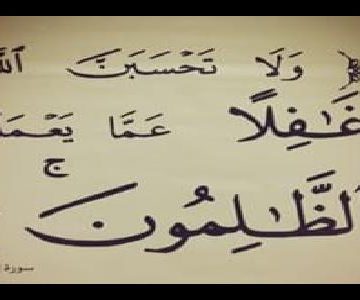 ﴿ وَلَا تَحْسَبَنَّ ٱللَّ
غَٰفِلًا عَمَّا يَعْمَ
ٱلظَّٰلِمُونَ ۚ
سورة